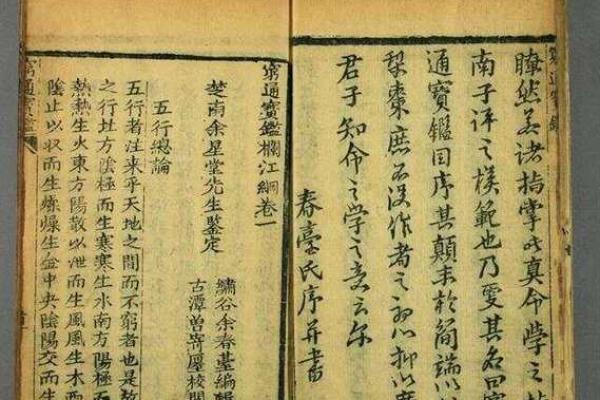 瞭然若諸指掌此真命學之指
南子評之模範也乃更其名曰窮
通寶鑑因序其顛末於簡端以
梨棗庶不沒作者之初心抑以
君子知命之學之意云尔
春臺氏序并書
窮通寶鑑欄江綱卷一
楚南余星堂先生鑒定
繡谷余春臺編輯
古潭曾寄厪校閱
五行總論
五行者往來乎天地之間而不窮者也是故
之行北方陰極而生寒寒生水南方陽極
熱熱生火東方陽散以泄而生風風生木西
陰止以收而生燥燥生金中央陰陽交而生
窮通寶鑑